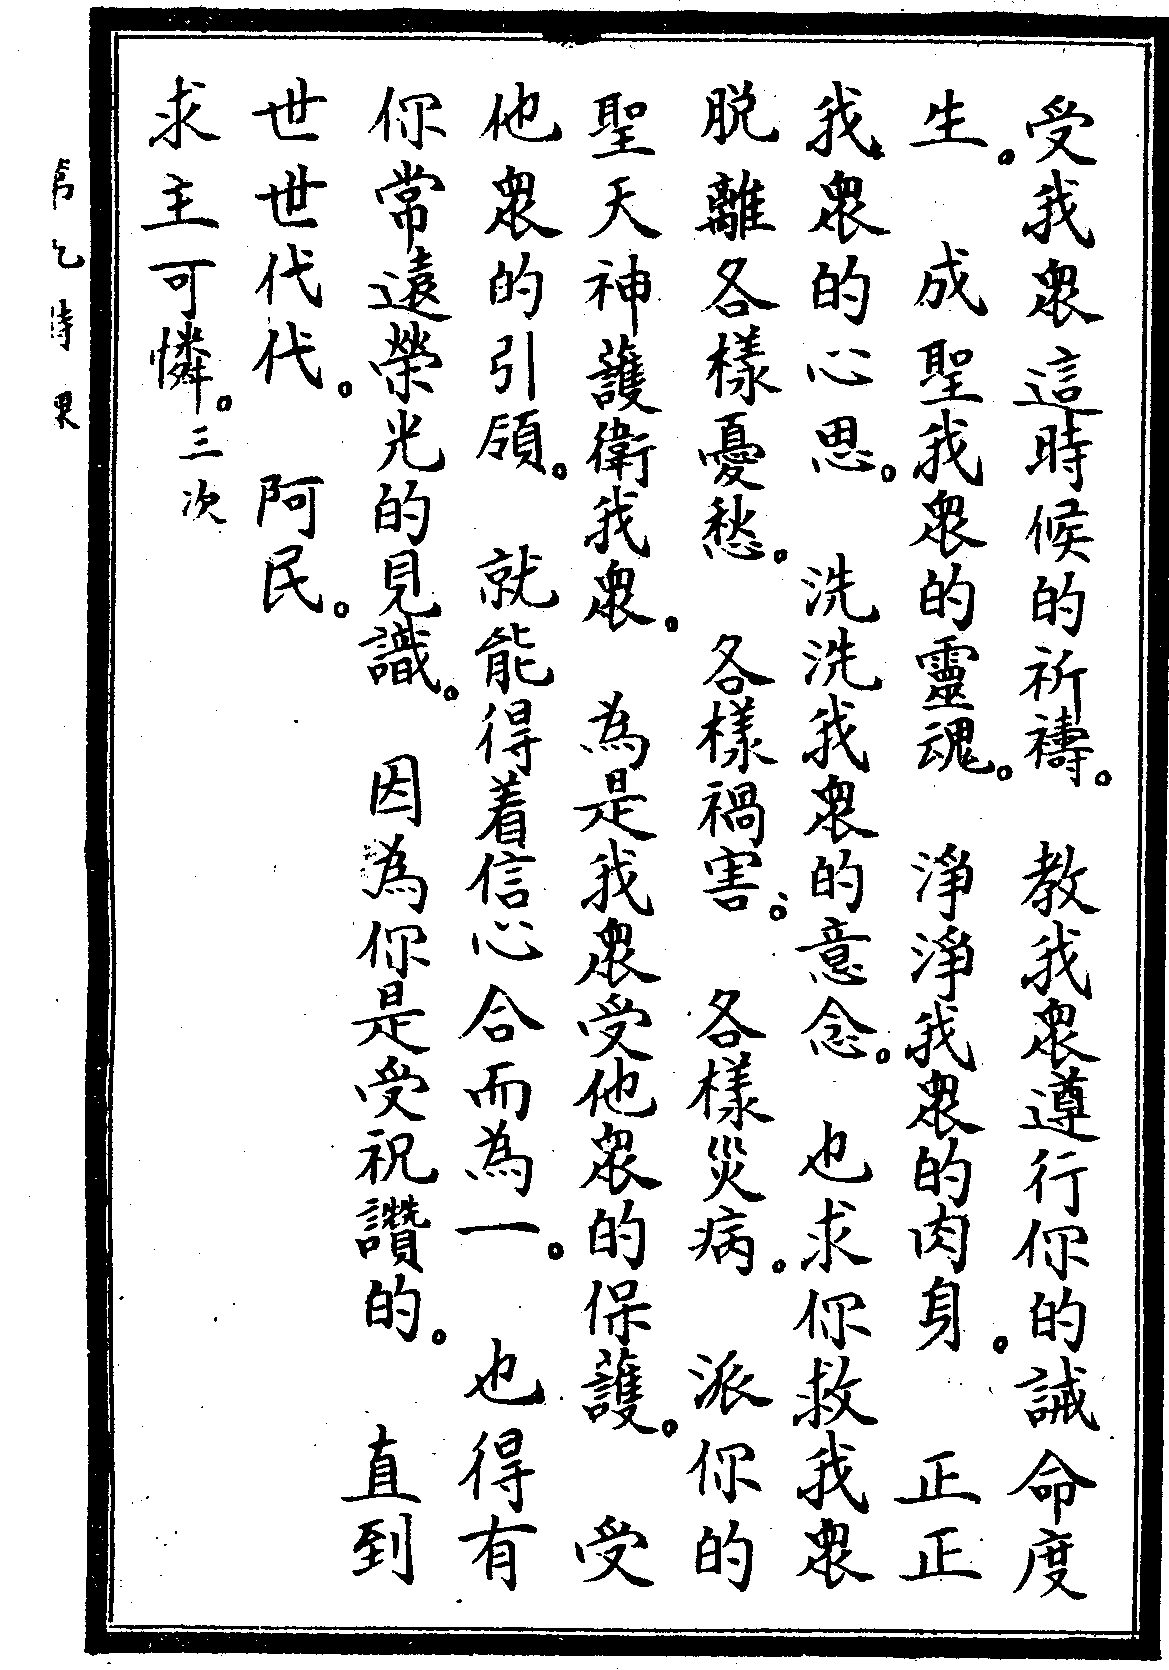 受我衆這時候的祈禱。　教我衆遵行你的誡命度
生。　成聖我衆的靈魂。　淨淨我衆的肉身。　正正
我衆的心思。　洗洗我衆的意念。　也求你救我衆
脱離各樣憂愁。　各樣禍害。　各樣災病。　派你的
聖天神護衛我衆。　為是我衆受他衆的保護。　受
他衆的引領。　就能得着信心合而為一。　也得有
你常遠榮光的見識。　因為你是受祝讚的。　直到
世世代代。　阿民。
求主可憐。三次